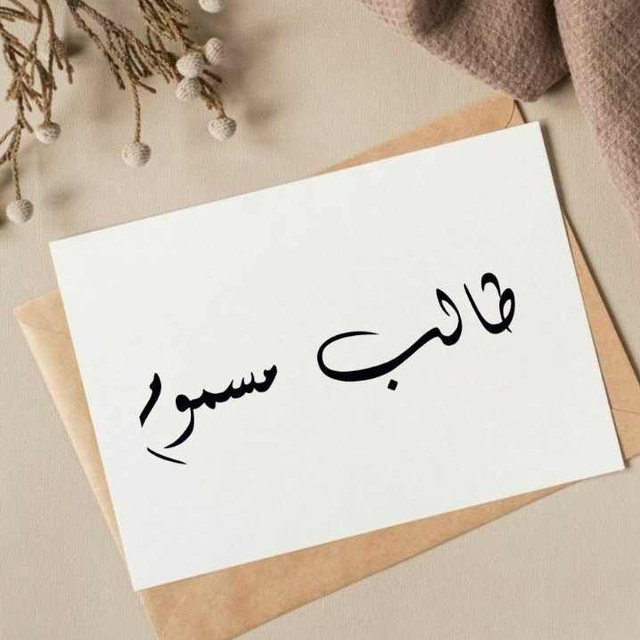 طالب مسموم